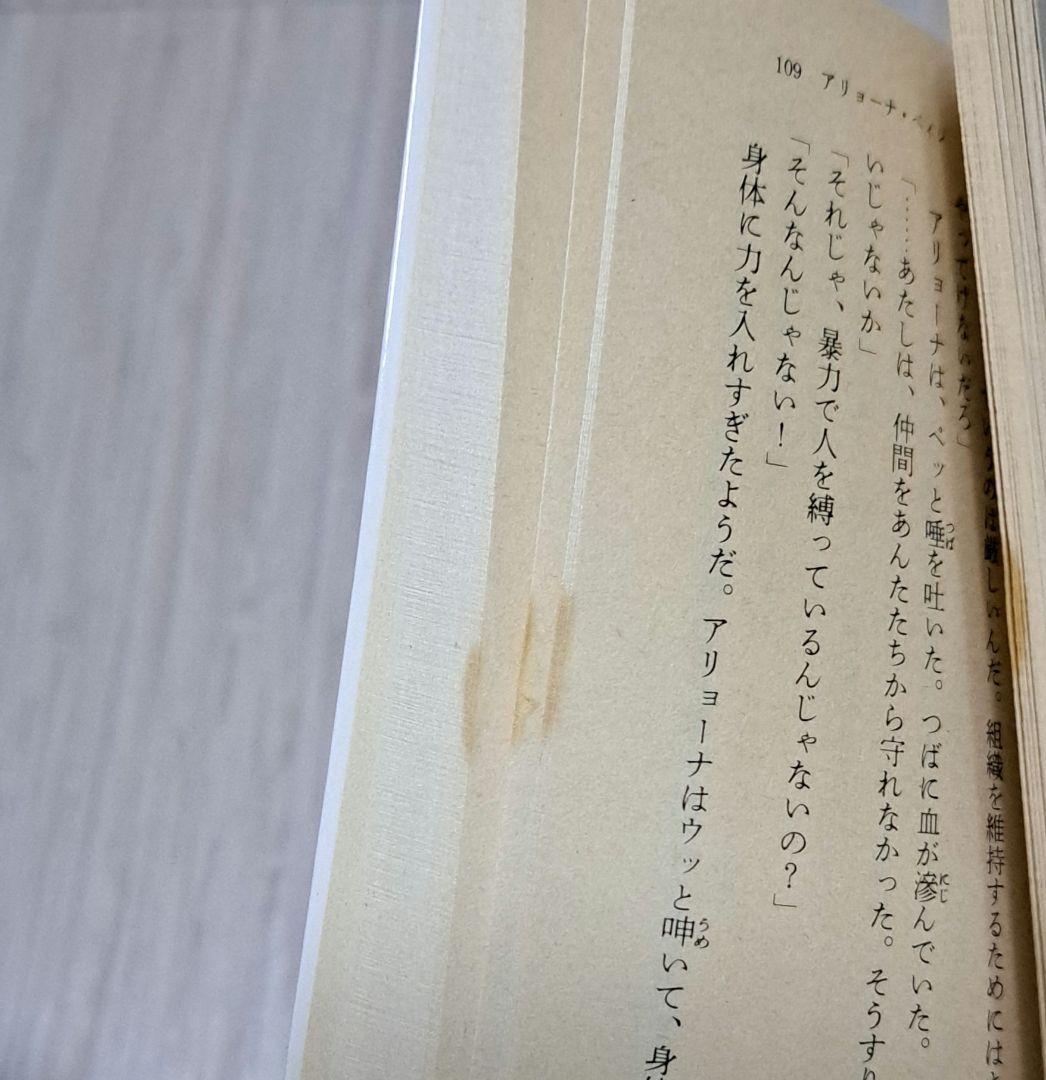 109 アリョーナ・ペイン
組織を維持するためにはと
やってけないだろ」
アリョーナは、ペッと唾を吐いた。つばに血が滲んでいた。
「……あたしは、仲間をあんたたちから守れなかった。そうすり
いじゃないか」
「それじゃ、暴力で人を縛っているんじゃないの？」
「そんなんじゃない！」
身体に力を入れすぎたようだ。アリョーナはウッと呻いて、身